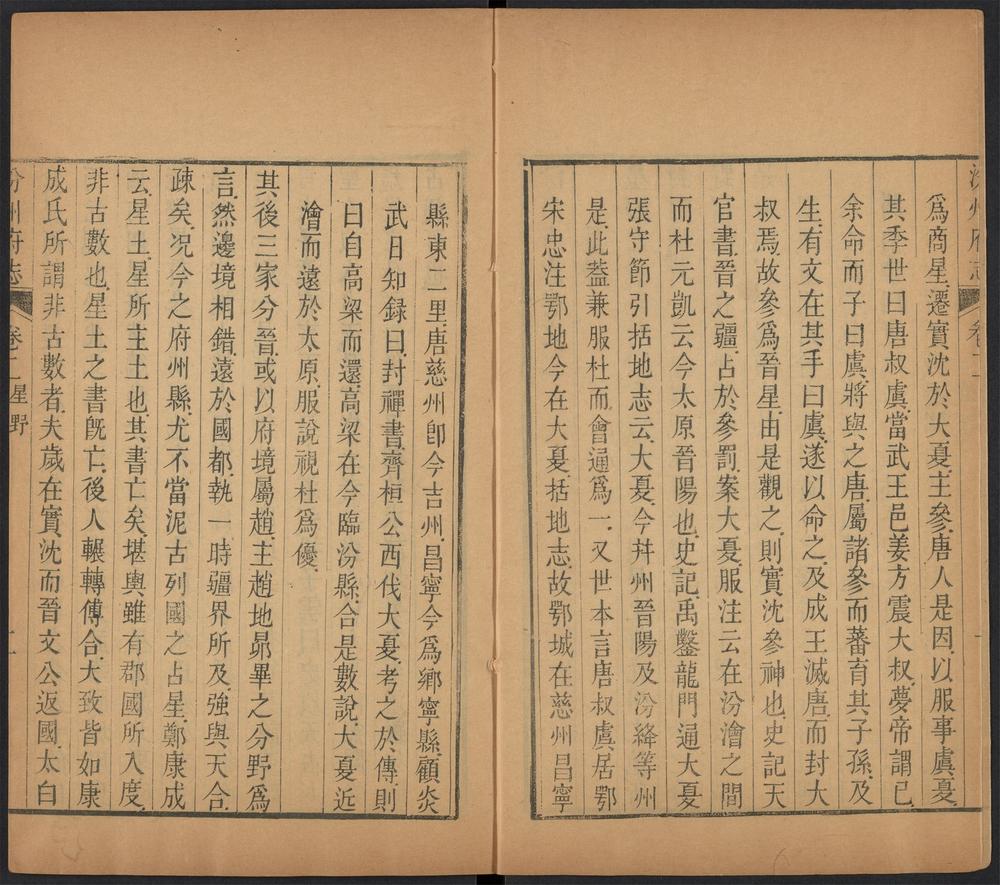 汾州府志 卷二
爲商星遷實沈於大夏主參唐人是因以服事虞夏
其季世曰唐叔虞當武王邑姜方震大叔夢帝謂己
余命而子曰虞將與之唐屬諸參而蕃育其子孫及
生有文在其手曰虞遂以命之及成王滅唐而封大
叔焉故參爲晉星由是觀之則實沈參神也史記天
官書晉之疆占於參罰案大夏服注云在汾澮之間
而杜元凱云今太原晉陽也史記禹鑿龍門通大夏
張守節引括地志云大夏今幷州晉陽及汾絳等州
是此蓋兼服杜而會通爲一又世本言唐叔虞居鄂
宋忠注鄂地今在大夏括地志故鄂城在慈州昌寧
縣東二里唐慈州卽今吉州昌寧今爲鄉寧縣顧炎
武日知録曰封禪書齊桓公西伐大夏考之於傳則
曰自高梁而還高梁在今臨汾縣合是數說大夏近
澮而遠於太原服說視杜爲優
其後三家分晉或以府境屬趙主趙地昴畢之分野爲
言然邊境相錯遠於國都執一時疆界所及強與天合
疎矣况今之府州縣尤不當泥古列國之占星鄭康成
云星土星所主土也其書亡矣堪輿雖有郡國所入度
非古數也星土之書旣亡後人輾轉傅合大致皆如康
成氏所謂非古數者夫歲在實沈而晉文公返國太白
汾州府志 卷二 星野